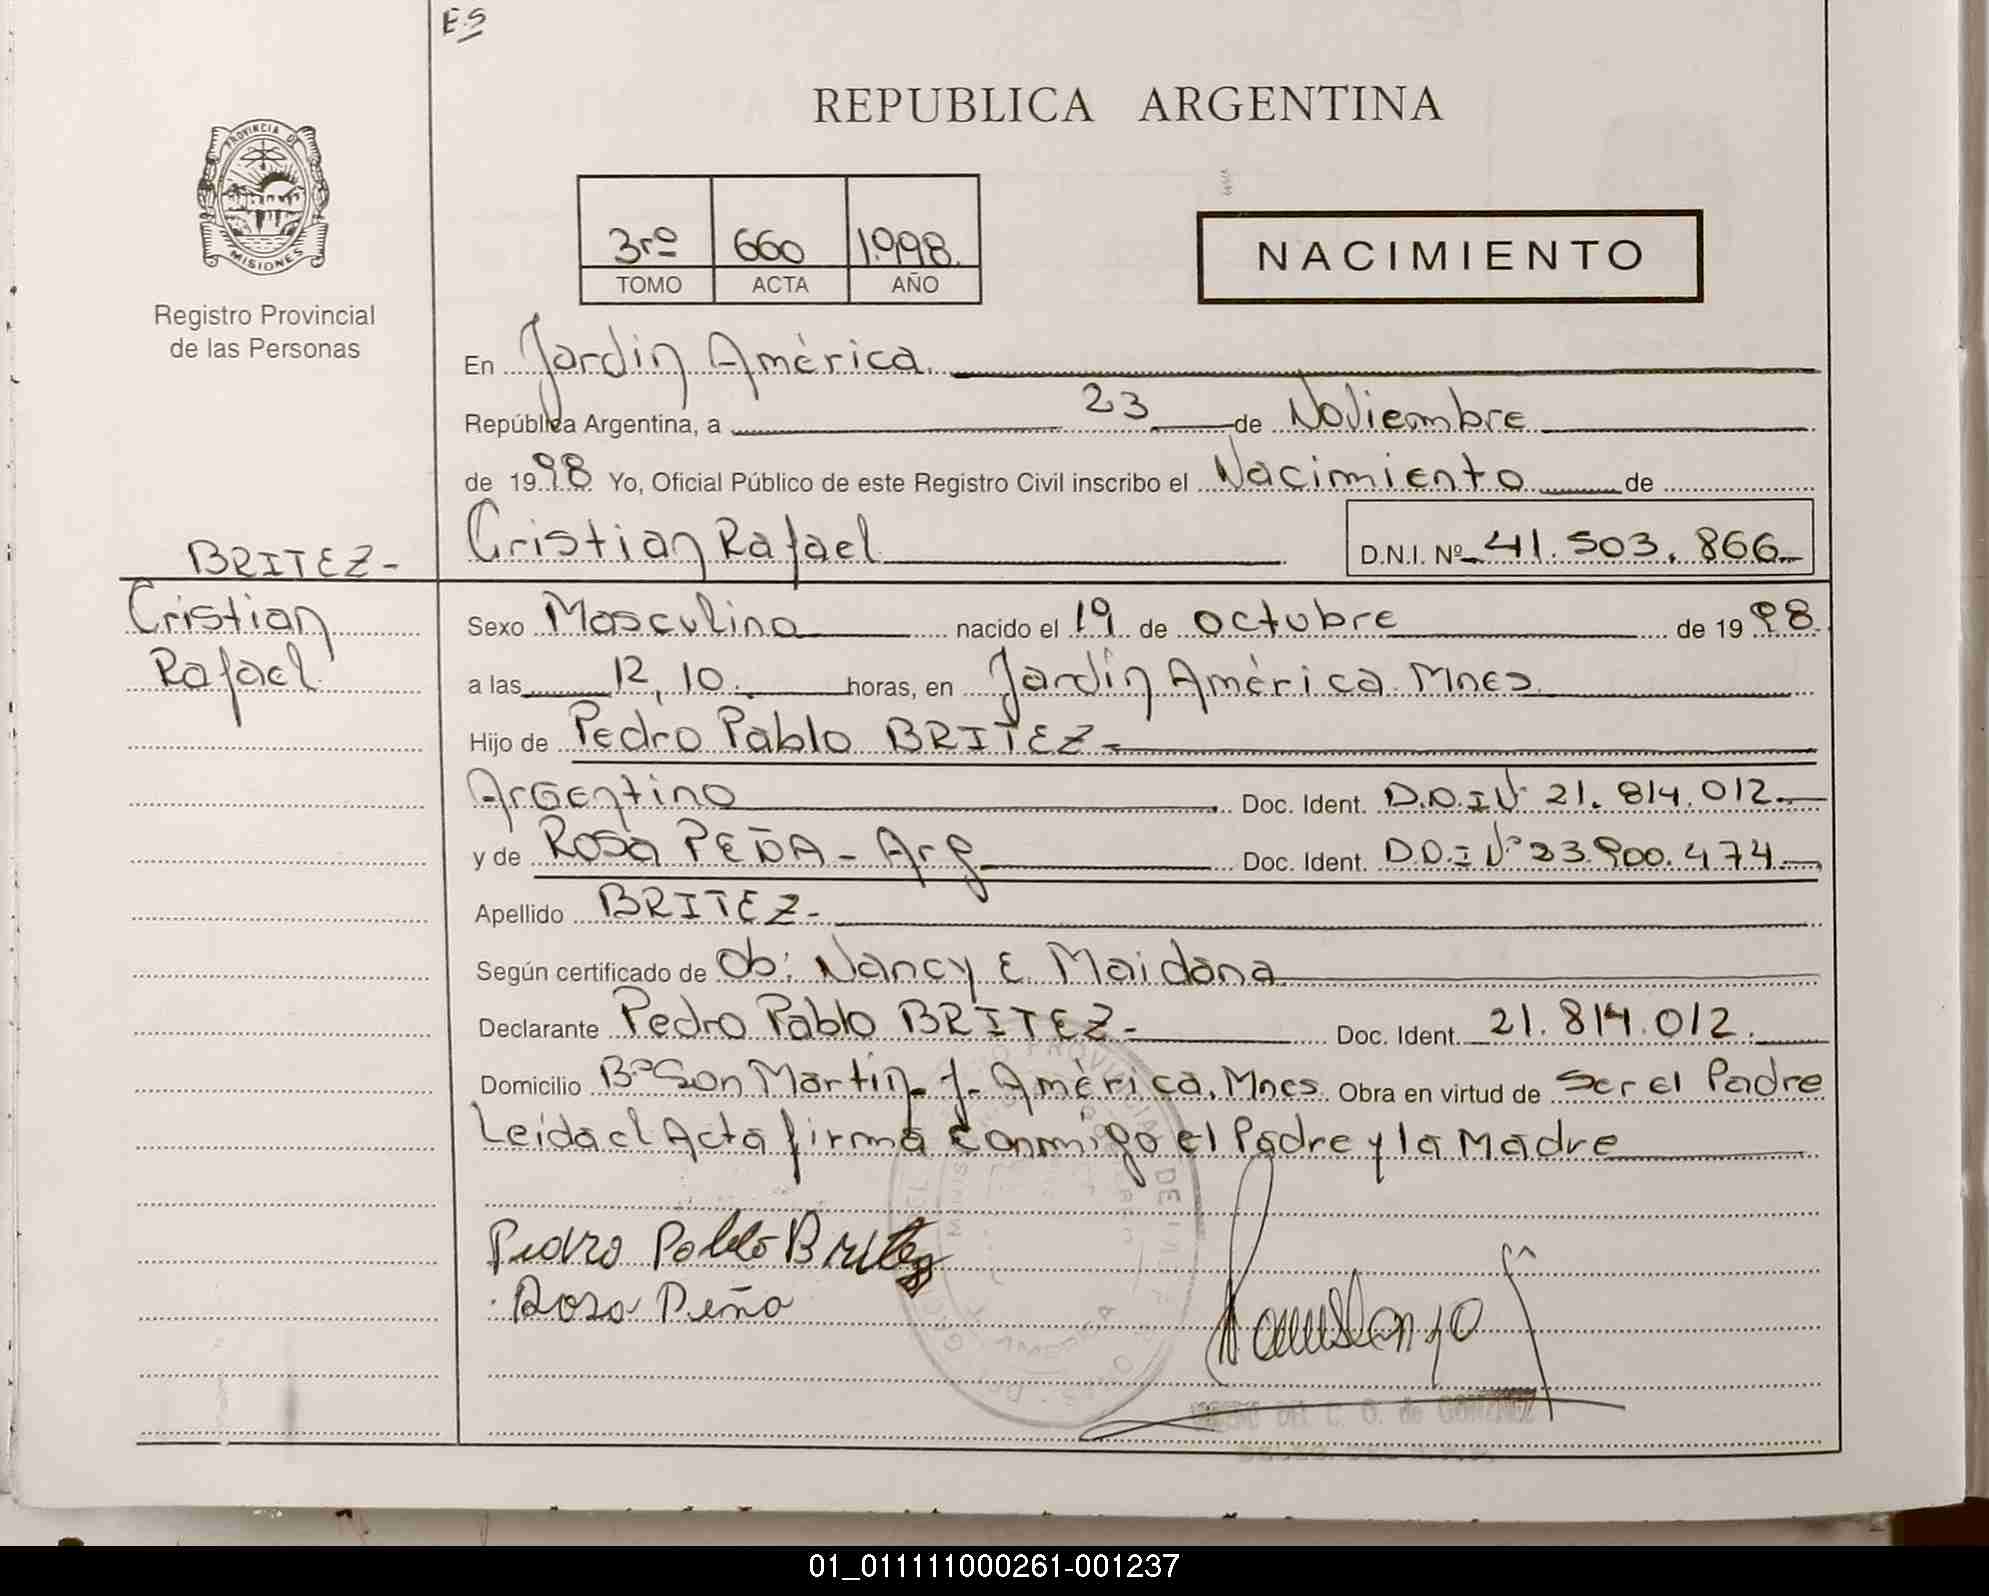 E.S
REPUBLICA ARGENTINA
PROVINCIA DE
MISIONES
3ro 660 1.998.
TOMO ACTA AÑO
NACIMIENTO
Registro Provincial
de las Personas
En Jardin América.
República Argentina, a 23 de Noviembre
de 1998 Yo, Oficial Público de este Registro Civil inscribo el Nacimiento de
Cristian Rafael D.N.I. Nº 41.503.866
BRITEZ-
Cristian
Rafael
Sexo Masculino nacido el 19 de octubre de 1998
a las 12,10 horas, en Jardin América Mnes
Hijo de Pedro Pablo BRITEZ-
Argentino Doc. Ident. D.D.I Nº 21.814.012
y de Rosa PEÑA - Arg Doc. Ident. D.D.I Nº 23.900.474
Apellido BRITEZ-
Según certificado de Ob: Nancy E. Maidana
Declarante Pedro Pablo BRITEZ- Doc. Ident. 21.814.012.
Domicilio Bº San Martin J. América. Mnes. Obra en virtud de Ser el Padre
Leida el Acta firma conmigo el Padre y la Madre
Pedro Pablo Britez
Rosa Peña
01_011111000261-001237